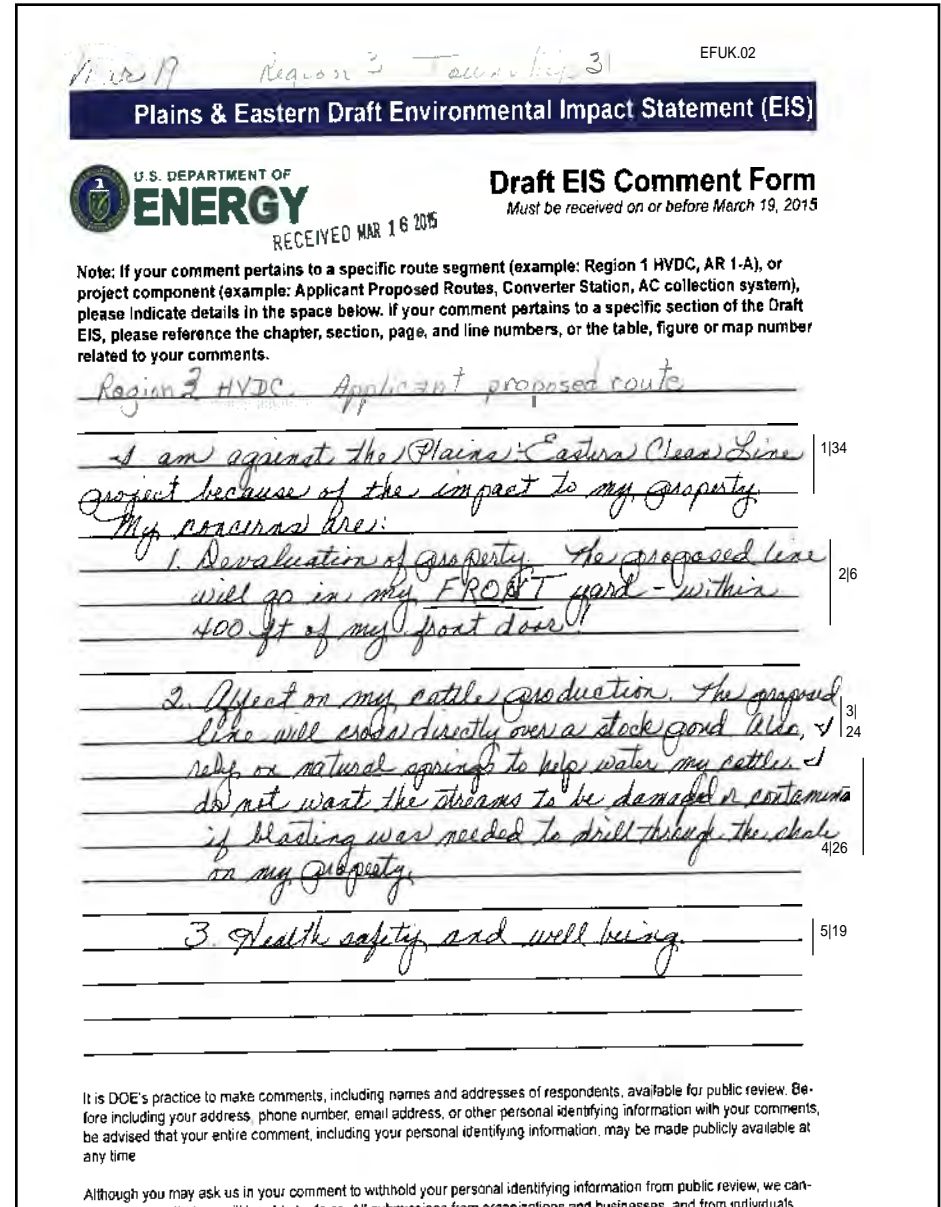 Mar 19 Region 3 Township 31
EFUK.02
Plains & Eastern Draft Environmental Impact Statement (EIS)
U.S. DEPARTMENT OF
ENERGY
Draft EIS Comment Form
Must be received on or before March 19, 2015
RECEIVED MAR 16 2015
Note: If your comment pertains to a specific route segment (example: Region 1 HVDC, AR 1-A), or
project component (example: Applicant Proposed Routes, Converter Station, AC collection system),
please indicate details in the space below. If your comment pertains to a specific section of the Draft
EIS, please reference the chapter, section, page, and line numbers, or the table, figure or map number
related to your comments.
Region 3 HVDC. Applicant proposed route
I am against the Plains & Eastern Clean Line
1|34
project because of the impact to my property.
My concerns are:
1. Devaluation of property. The proposed line
2|6
will go in my FRONT yard - within
400 ft of my front door!
2. Affect on my cattle production. The proposed
3|
line will cross directly over a stock pond Also, I
24
rely on natural springs to help water my cattle. I
do not want the streams to be damaged or contamina
if blasting was needed to drill through the shale
4|26
on my property.
3. Health safety and well being.
5|19
It is DOE's practice to make comments, including names and addresses of respondents, available for public review. Be-
fore including your address, phone number, email address, or other personal identifying information with your comments,
be advised that your entire comment, including your personal identifying information, may be made publicly available at
any time
Although you may ask us in your comment to withhold your personal identifying information from public review, we can-